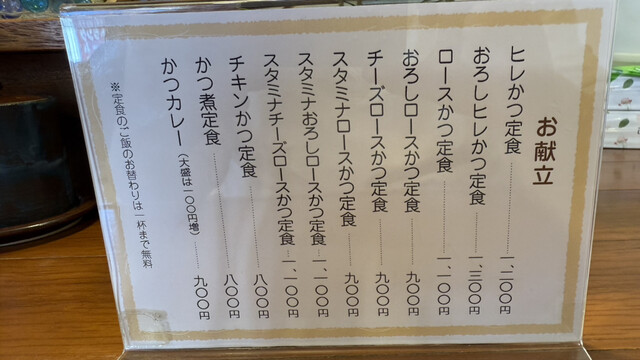 お献立
ヒレかつ定食 一、二〇〇円
おろしヒレかつ定食 一、三〇〇円
ロースかつ定食 一、一〇〇円
おろしロースかつ定食 九〇〇円
チーズロースかつ定食 九〇〇円
スタミナロースかつ定食 九〇〇円
スタミナおろしロースかつ定食 一、一〇〇円
スタミナチーズロースかつ定食 一、一〇〇円
チキンかつ定食 八〇〇円
かつ煮定食 八〇〇円
かつカレー（大盛は一〇〇円増） 九〇〇円
※定食のご飯のお替わりは一杯まで無料